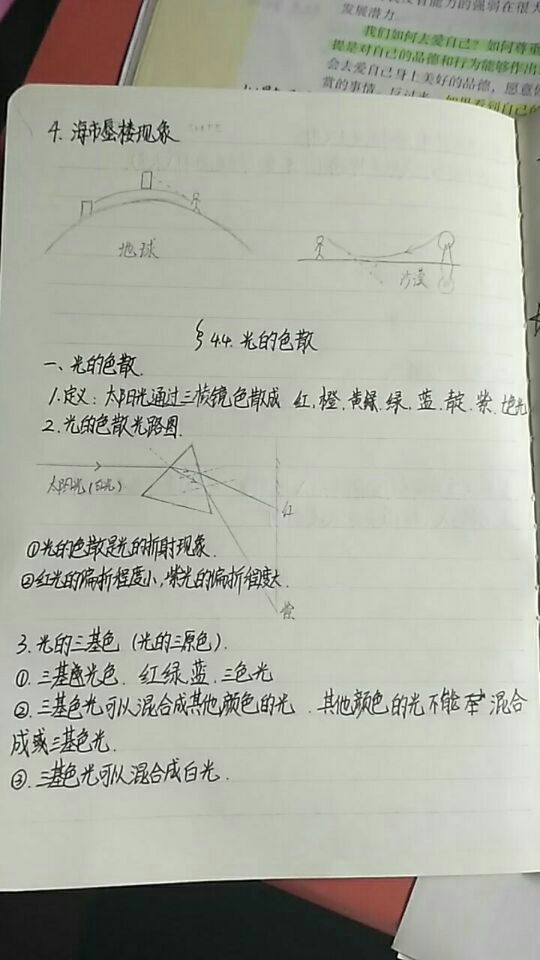 发展潜力
我们如何去爱自己？如何尊重
提是对自己的品德和行为能够作出
会去爱自己身上美好的品德，愿意
赏的事情。反过来，如果看到自己的
4. 海市蜃楼现象
地球
沙漠
§4.4. 光的色散
一、光的色散.
1.定义：太阳光通过三棱镜色散成 红、橙、黄、绿、蓝、靛、紫、色光
2.光的色散光路图.
太阳光(白光)
红
紫
①光的色散是光的折射现象.
②红光的偏折程度小，紫光的偏折程度大.
3.光的三基色（光的三原色）.
①.三基色光色. 红.绿.蓝.三色光
②.三基色光可以混合成其他颜色的光.其他颜色的光不能混合
成或三基色光.
③.三基色光可以混合成白光.